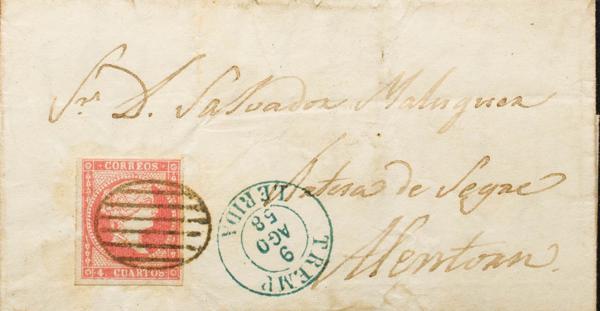 Sr. D. Salvador Maluquer
Artesa de Segre
Alentorn.
CORREOS
4. CUARTOS
TREMP
9
AGO
58
LERIDA